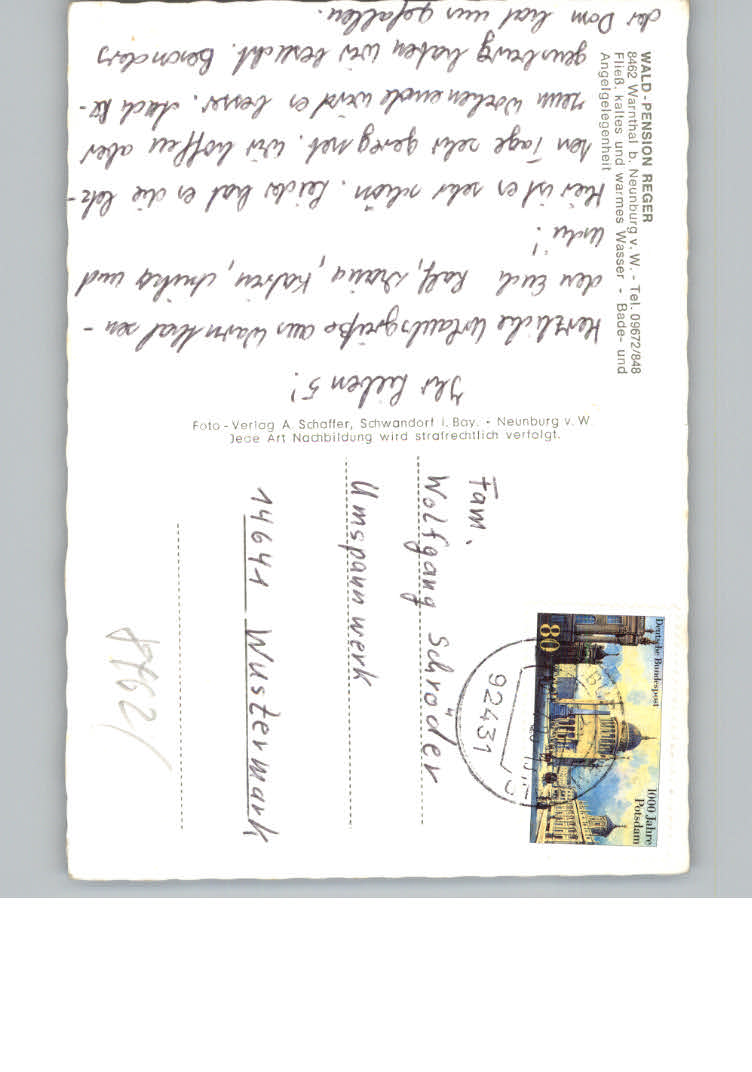 WALD-PENSION REGER
8462 Warnthal b. Neunburg v. W. - Tel. 09672/848
Fließ. kaltes und warmes Wasser - Bade- und
Angelgelegenheit
Ihr Lieben 5!
Herzliche Urlaubsgrüße aus Warnthal sen-
den Euch Ralf, Katrin, und
Hier ist es sehr schön. Leider hat es die letz-
ten Tage sehr geregnet. Wir hoffen aber
zum Wochenende wird es besser. Auch Re-
gensburg haben wir besucht. Besonders
der Dom hat uns gefallen.
Foto-Verlag A. Schaffer, Schwandorf i. Bay. - Neunburg v. W.
Jede Art Nachbildung wird strafrechtlich verfolgt.
Deutsche Bundespost
80
1000 Jahre
Potsdam
92431
Fam.
Wolfgang Schröder
Umspannwerk
14641 Wustermark